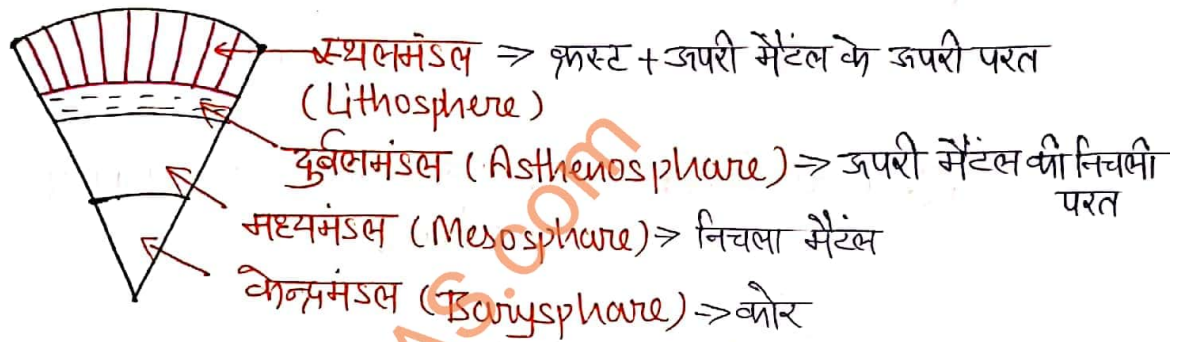 स्थलमंडल ⇒ क्रस्ट + ऊपरी मैटंल के ऊपरी परत
(Lithosphere)
दुर्बलमंडल (Asthenosphare) ⇒ ऊपरी मैटंल की निचली
परत
मध्यमंडल (Mesosphare) ⇒ निचला मैटंल
केन्द्रमंडल (Barysphare) → कोर
AS.com